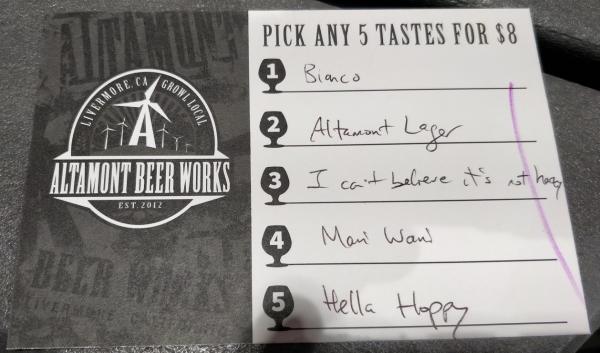 ALTAMONT
LIVERMORE, CA
GROW LOCAL
A
ALTAMONT BEER WORKS
EST. 2012
BEER WORKS
LIVERMORE
PICK ANY 5 TASTES FOR $8
1 Bianco
2 Altamont Lager
3 I can't believe it's not hazy
4 Maui Waui
5 Hella Hoppy